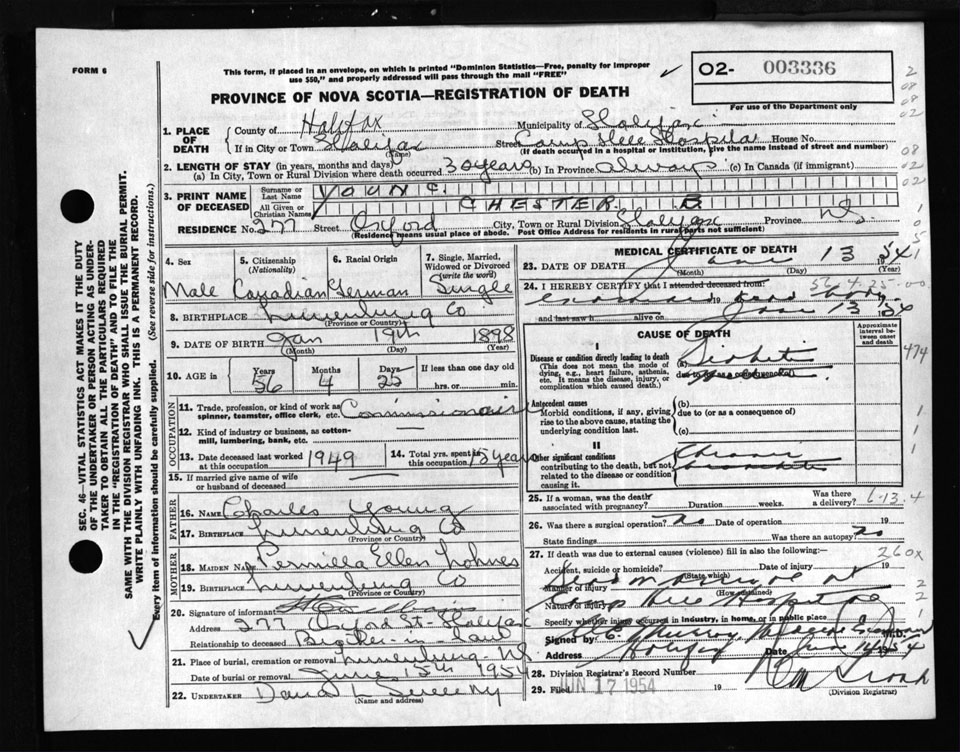 FORM 6
This form, if placed in an envelope, on which is printed "Dominion Statistics—Free, penalty for improper
use $50," and properly addressed will pass through the mail "FREE"
02- 003336
For use of the Department only
PROVINCE OF NOVA SCOTIA—REGISTRATION OF DEATH
SEC. 46—VITAL STATISTICS ACT MAKES IT THE DUTY
OF THE UNDERTAKER OR PERSON ACTING AS UNDER-
TAKER TO OBTAIN ALL THE PARTICULARS REQUIRED
IN THE "REGISTRATION OF DEATH" AND TO FILE THE
SAME WITH THE DIVISION REGISTRAR WHO SHALL ISSUE THE BURIAL PERMIT.
WRITE PLAINLY WITH UNFADING INK. THIS IS A PERMANENT RECORD.
Every item of information should be carefully supplied. (See reverse side for instructions.)
1. PLACE OF DEATH
County of Halifax Municipality of Halifax
If in City or Town Halifax (Name) Street Camp Hill Hospital House No.
(If death occurred in a hospital or institution, give the name instead of street and number)
2. LENGTH OF STAY (in years, months and days)
(a) In City, Town or Rural Division where death occurred 30 years (b) In Province always (c) In Canada (if immigrant)
3. PRINT NAME OF DECEASED
Surname or Last Name YOUNG
All Given or Christian Names CHESTER B
RESIDENCE No. 277 Street Oxford City, Town or Rural Division Halifax Province N.S.
(Residence means usual place of abode. Post Office Address for residents in rural parts not sufficient)
4. Sex Male
5. Citizenship (Nationality) Canadian
6. Racial Origin German
7. Single, Married, Widowed or Divorced (write the word) Single
8. BIRTHPLACE Lunenburg Co
(Province or Country)
9. DATE OF BIRTH Jan 19th 1898
(Month) (Day) (Year)
10. AGE in Years 56 Months 4 Days 25 If less than one day old hrs. or min.
OCCUPATION
11. Trade, profession, or kind of work as spinner, teamster, office clerk, etc. Commissionaire
12. Kind of industry or business, as cotton-mill, lumbering, bank, etc. —
13. Date deceased last worked at this occupation 1949
14. Total yrs. spent in this occupation 15 years
15. If married give name of wife or husband of deceased —
FATHER
16. NAME Charles Young
17. BIRTHPLACE Lunenburg Co
(Province or Country)
MOTHER
18. MAIDEN NAME Permilla Ellen Lohnes
19. BIRTHPLACE Lunenburg Co
(Province or Country)
20. Signature of informant
Address 277 Oxford St - Halifax
Relationship to deceased Brother-in-law
21. Place of burial, cremation or removal Lunenburg NS
Date of burial or removal June 15th 1954
22. UNDERTAKER
(Name and address)
MEDICAL CERTIFICATE OF DEATH
23. DATE OF DEATH June 13 54
(Month) (Day) (Year)
24. I HEREBY CERTIFY that I attended deceased from:
examined 19 dead body
and last saw h alive on June 13 1954
CAUSE OF DEATH
Approximate interval between onset and death
I
Disease or condition directly leading to death
(This does not mean the mode of dying, e.g., heart failure, asthenia, etc. It means the disease, injury, or complication which caused death.)
(a)
due to (or as a consequence of)
Antecedent causes
Morbid conditions, if any, giving rise to the above cause, stating the underlying condition last.
(b)
due to (or as a consequence of)
(c)
II
Other significant conditions
contributing to the death, but not related to the disease or condition causing it.
Chronic
bronchitis
25. If a woman, was the death associated with pregnancy? Duration weeks. Was there a delivery?
26. Was there a surgical operation? no Date of operation 19
State findings Was there an autopsy? no
27. If death was due to external causes (violence) fill in also the following:
Accident, suicide or homicide? (State which) Date of injury 19
Manner of injury (How sustained)
Nature of injury Camp Hill Hospital
Specify whether injury occurred in industry, in home, or in public place
Signed by Medical Examiner M.D.
Address Halifax Date June 1954
28. Division Registrar's Record Number
29. Filed JUN 17 1954 19
(Division Registrar)
260x
474